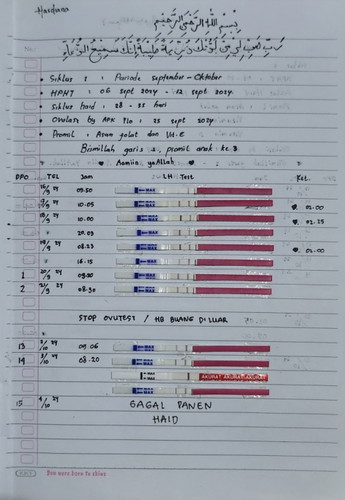 بِسْمِ اللهِ الرَّحْمٰنِ الرَّحِيْمِ
رَبِّ هَبْ لِيْ مِنْ لَدُنْكَ ذُرِّيَّةً طَيِّبَةً إِنَّكَ سَمِيْعُ الدُّعَاءِ
• Siklus 2 : Periode September - Oktober
• HPHT : 06 Sept 2024 - 12 Sept 2024
• Siklus haid : 28 - 35 hari
• Ovulasi by APK Flo : 23 Sept 2024
• Promil : Asam folat dan vit. E
Bismillah garis 2, promil anak ke 3
♥ Aamiin yaAllah ♥
DPO TGL Jam LH Test Ket.
09.50
10.05 ♥ 02.00
18/9 24 10.00 ♥ 02.25
20.09
19/9 24 08.23 ♥ 02.00
16.15
1 20/9 24 09.20
2 21/9 24 08.30
STOP OVUTEST / HB BUANG DILUAR
13 2/10 24 09.06
14 3/10 24 08.20
AKURAT
15 4/10 24 GAGAL PANEN
HAID